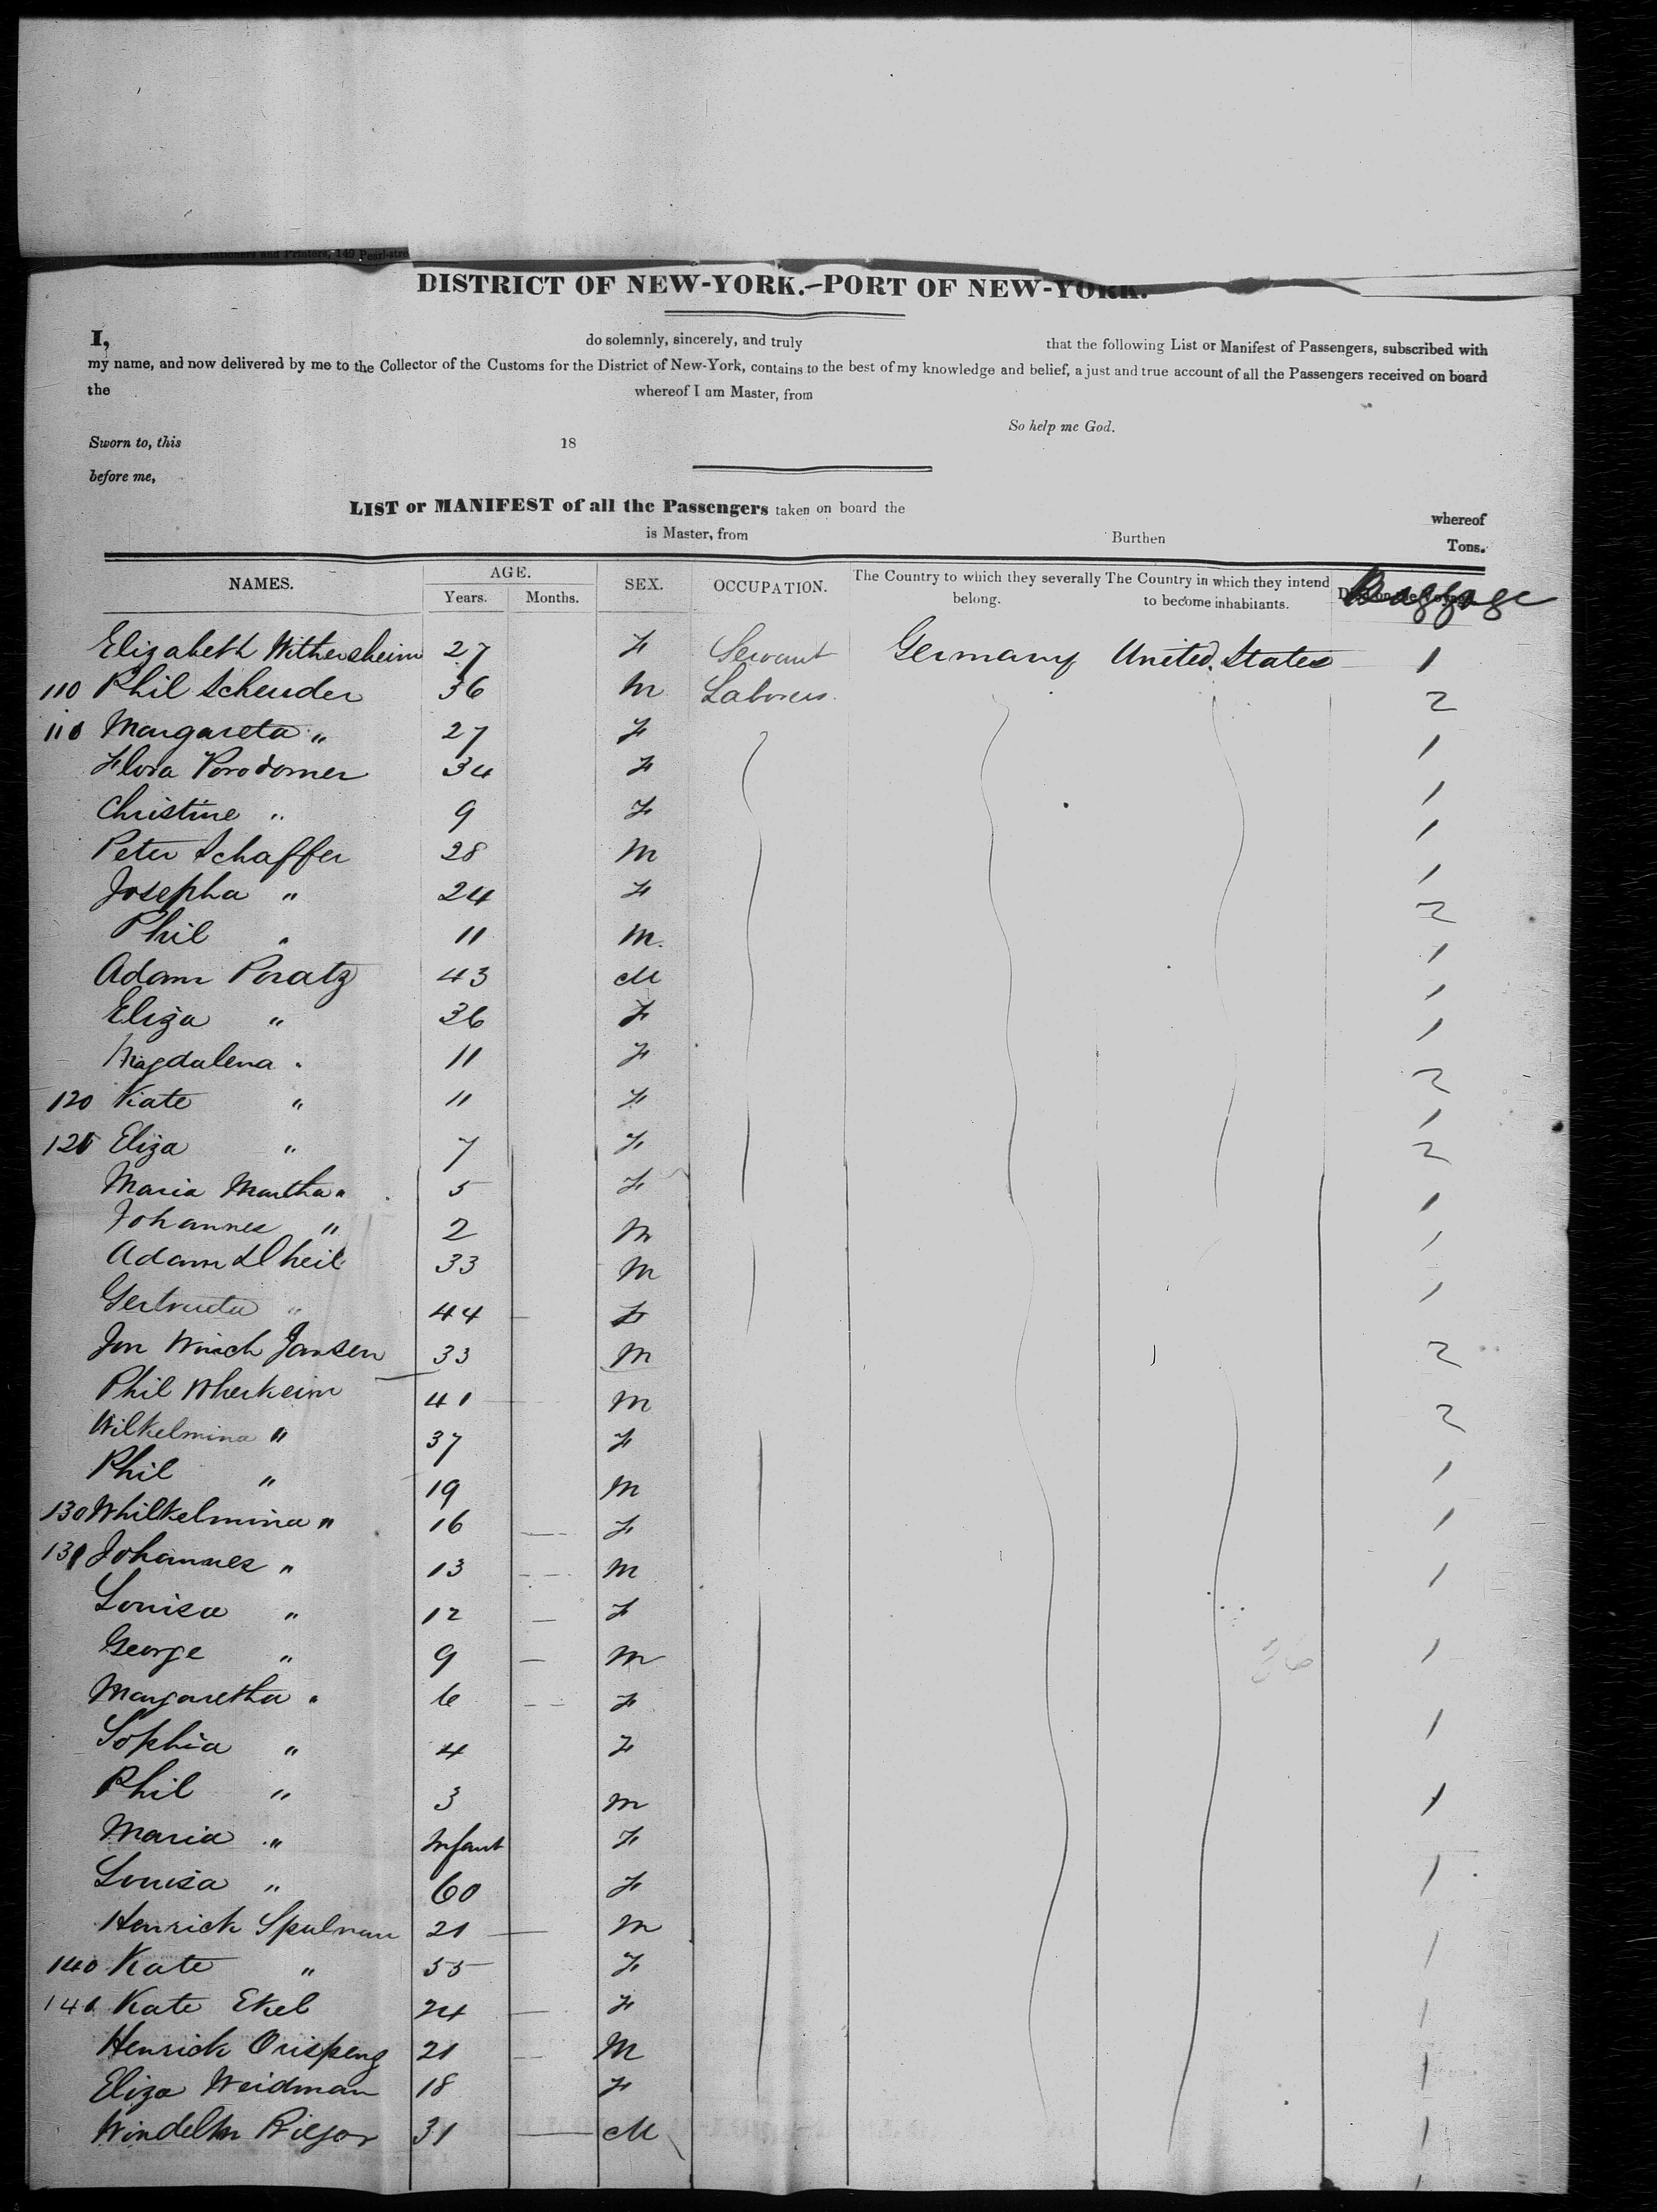 Stationers and Printers, 149 Pearl-stre
DISTRICT OF NEW-YORK.—PORT OF NEW-YORK.
I, do solemnly, sincerely, and truly that the following List or Manifest of Passengers, subscribed with
my name, and now delivered by me to the Collector of the Customs for the District of New-York, contains to the best of my knowledge and belief, a just and true account of all the Passengers received on board
the whereof I am Master, from
So help me God.
Sworn to, this 18
before me,
LIST or MANIFEST of all the Passengers taken on board the whereof
is Master, from Burthen Tons.
NAMES. AGE. SEX. OCCUPATION. The Country to which they severally belong. The Country in which they intend to become inhabitants. Baggage
Years. Months.
Elizabeth Withersheim 27 F Servant Germany United States 1
110 Phil Scheuder 36 M Laborers 2
111 Margareta " 27 F 1
Flora 34 F 1
Christine " 9 F 1
Peter Schaffer 28 M 1
Josepha " 24 F 2
Phil " 11 M. 1
Adam Poratz 43 M 1
Eliza " 36 F 1
Magdalena " 11 F 2
120 Kate " 11 F 1
121 Eliza " 7 F 2
Maria Martha " 5 F 1
Johannes " 2 M 1
Adam 33 M 1
Gertruda " 44 F
Jansen 33 M 2
Phil Wherheim 41 M 2
Wilhelmina " 37 F
Phil " 19 M 1
130 Whilhelmina " 16 F 1
131 Johannes " 13 M 1
Louisa " 12 F
George " 9 M 1
Margaretha " 6 F
Sophia " 4 F 1
Phil " 3 M 1
Maria " Infant F
Louisa " 60 F 1
Henrick Spulman 21 M
140 Kate " 55 F 1
141 Kate Ekel 24 F 1
Henrick 21 M
Eliza Weidman 18 F 1
31 M 1